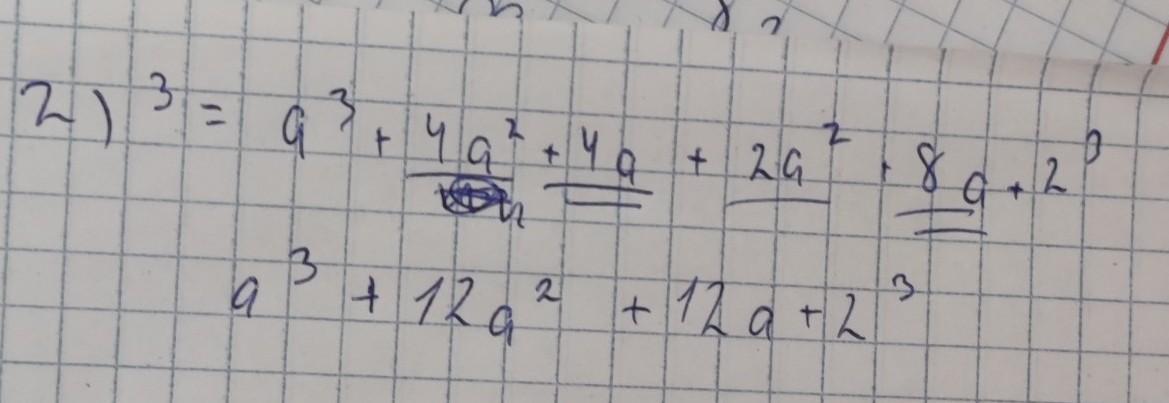 2)³ = a³ + 4a² + 4a + 2a² + 8a + 2³
a³ + 12a² + 12a + 2³